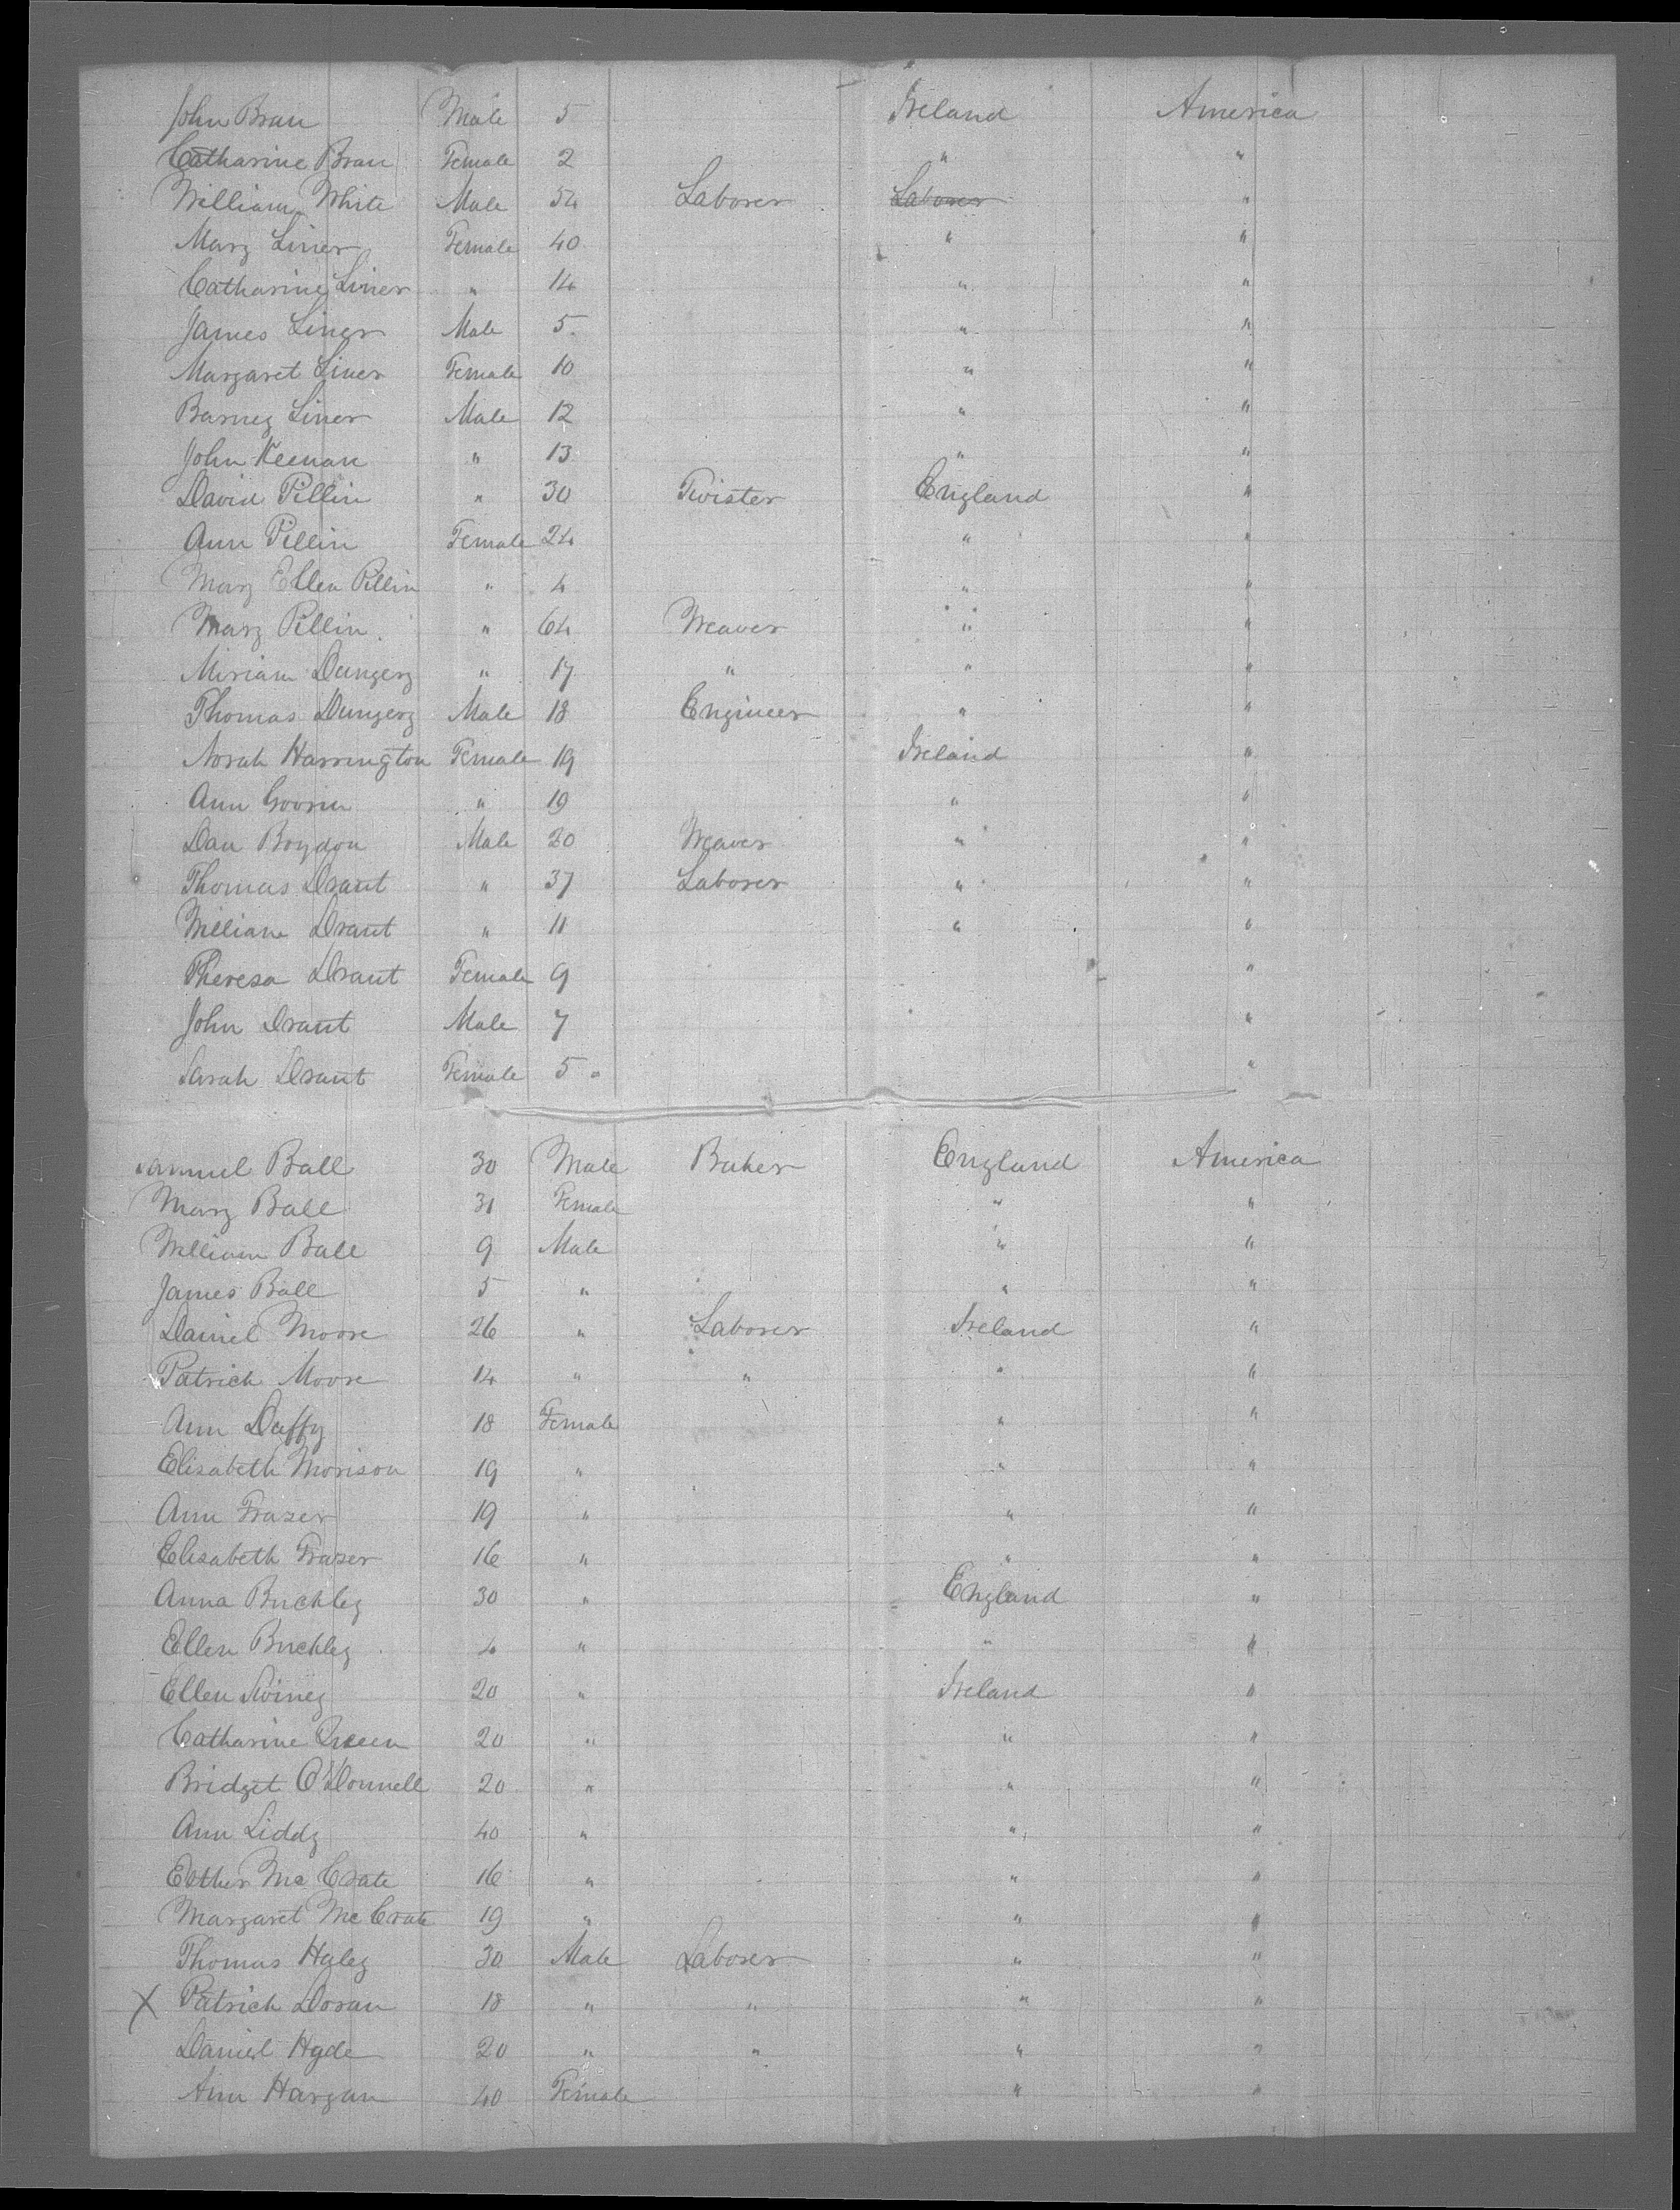 John Bran Male 5 Ireland America
Catharine Bran Female 2 " "
William White Male 54 Laborer Laborer "
Mary Liner Female 40 " "
Catharine Liner " 14 " "
James Liner Male 5. " "
Margaret Liner Female 10 " "
Barney Liner Male 12 " "
John Keenan " 13 " "
David Pillin " 30 Twister England "
Ann Pillin Female 24 " "
Mary Ellen Pillin " 4 " "
Mary Pillin " 64 Weaver " "
Miriam Dungery " 17 " " "
Thomas Dungery Male 18 Engineer " "
Norah Harrington Female 19 Ireland "
Ann " 19 " "
Dan Boydon Male 20 Weaver " "
Thomas Drant " 37 Laborer " "
William Drant " 11 " "
Theresa Drant Female 9 "
John Drant Male 7 "
Sarah Drant Female 5 "
Samuel Ball 30 Male Baker England America
Mary Ball 31 Female " "
William Ball 9 Male " "
James Ball 5 " " "
Daniel Moore 26 " Laborer Ireland "
Patrick Moore 14 " " " "
Ann Duffy 18 Female " "
Elisabeth Morison 19 " " "
Ann Frazer 19 " " "
Elisabeth Frazer 16 " " "
Anna Buckley 30 " England "
Ellen Buckley 4 " " "
Ellen Swiney 20 " Ireland "
Catharine Queen 20 " " "
Bridget O'Donnell 20 " " "
Ann Liddy 40 " " "
Esther Mc Crate 16 " " "
Margaret Mc Crate 19 " " "
Thomas Haley 30 Male Laborer " "
X Patrick Doran 18 " " " "
Daniel Hyde 20 " " " "
Ann Hargan 40 Female " "